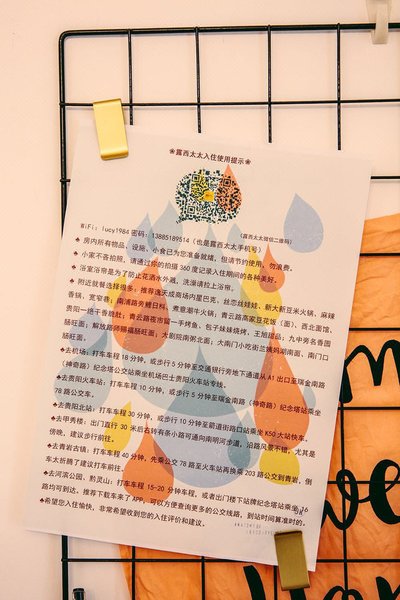 ❀露西太太入住使用提示❀
(露西太太微信二维码)
WiFi: lucy1984 密码: 13885189514 (也是露西太太手机号)
♣ 房内所有物品、设施、小食已为您准备就绪，但请节约使用、勿浪费。
♣ 小家不吝拍照，请通过你的拍摄 360 度记录入住期间的各种美好。
♣ 浴室浴帘是为了防止花洒水外溅，洗澡请拉上浴帘。
♣ 附近就餐选择很多：推荐逸天成商场内星巴克、丝恋丝娃娃、新大新豆米火锅、麻辣
香锅、宽窄巷；南浦路旁鲤日料、煮意潮牛火锅；青云路高家豆花饭（面）、酉北面馆、
贵阳一绝干香脆肚；青云路夜市留一手烤鱼、包子妹妹烧烤、王旭甜品；九中旁名香园
肠旺面；解放路师狮福肠旺面，大剧院南粥北面；大南门小吃街兰姨妈湖南面、南门口
肠旺面。
♣去机场：打车车程 18 分钟，或步行 5 分钟至交通银行旁地下通道从 A1 出口至瑞金南路
（神奇路）纪念塔公交站乘坐机场巴士贵阳火车站专线。
♣去贵阳火车站：打车车程 10 分钟，或步行 5 分钟至瑞金南路（神奇路）纪念塔站乘坐
78 路公交车。
♣去贵阳北站：打车车程 30 分钟，或步行 10 分钟至箭道街路口站乘坐 K50 大站快车。
♣去甲秀楼：出门直行 30 米后右转有条小路可通向南明河步道，沿路风景不错，尤其是
傍晚，建议步行前往。
♣去青岩古镇：打车车程 40 分钟，先乘公交 78 路至火车站再换乘 203 路公交到青岩，倒
车太折腾了建议打车前往。
♣去河滨公园、黔灵山：打车车程 15-20 分钟车程，或者出门楼下站牌纪念塔站乘坐 16
路均可到达。推荐下载车来了 APP，可以方便查询更多的公交线路，到站时间算准时的。
♣希望您入住愉快，非常希望收到您的入住评价和建议。
m
we